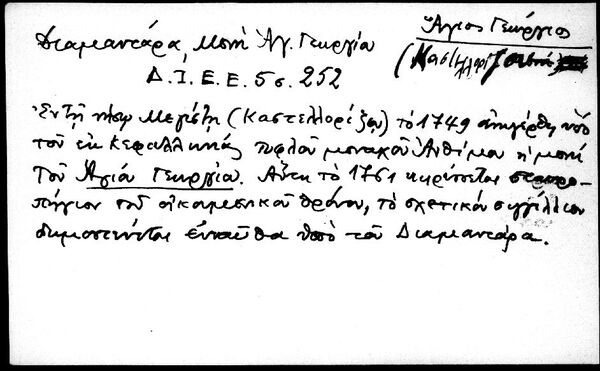 Ἅγιος Γεώργιος
(Καστελλορίζου)
Διαμαντάρα, Μονὴ Ἁγ. Γεωργίου
Δ.Ι.Ε.Ε. 5 σ. 252
Ἐν τῇ νήσῳ Μεγίστῃ (Καστελλορίζου) τὸ 1749 ἀνηγέρθη ὑπὸ
τοῦ ἐκ Κεφαλληνίας τυφλοῦ μοναχοῦ Ἀνθίμου ἡ μονὴ
τοῦ Ἁγίου Γεωργίου. Αὕτη τὸ 1761 κηρύσσεται σταυρο-
πήγιον τοῦ οἰκουμενικοῦ θρόνου, τὸ σχετικὸν σιγγίλλιον
δημοσιεύεται ἐνταῦθα ὑπὸ τοῦ Διαμαντάρα.